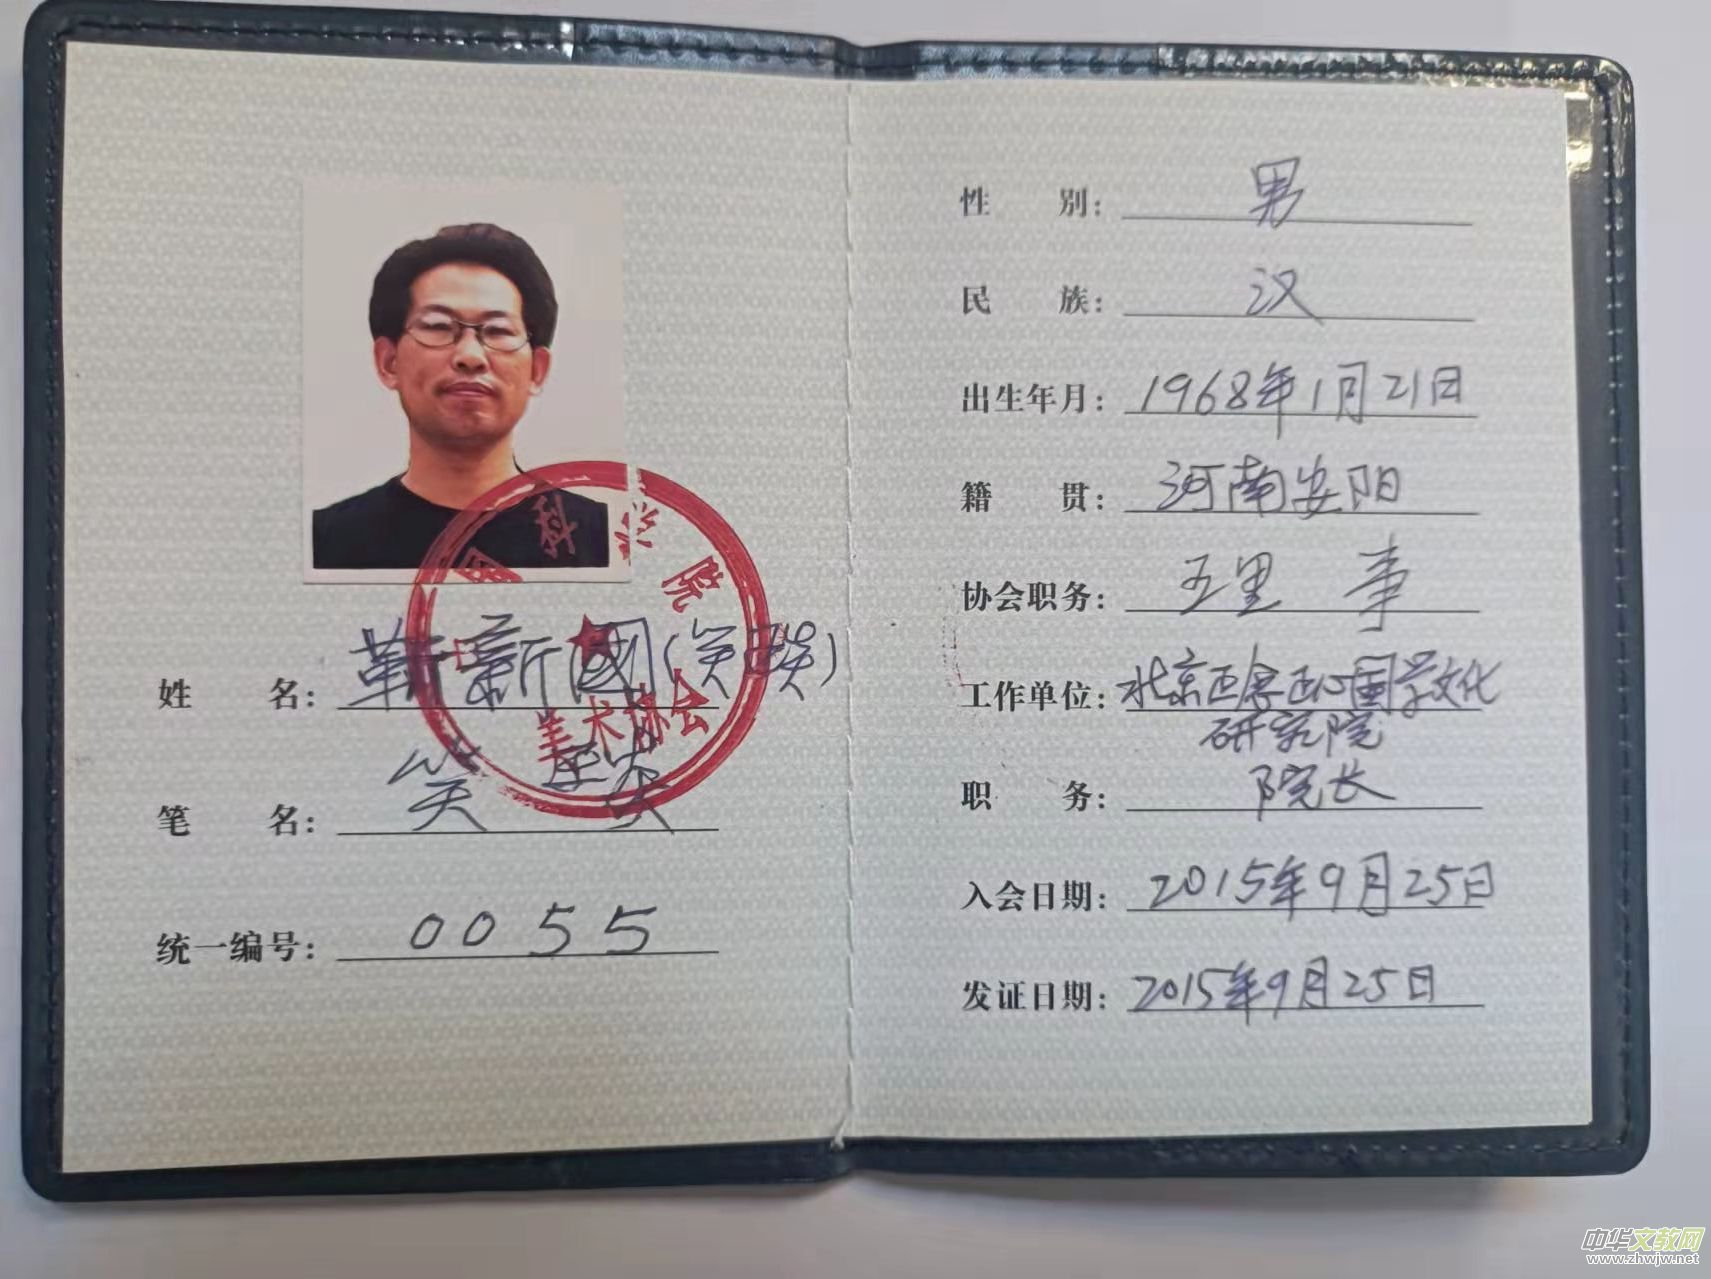 国科学院
美术协会
姓 名：靳新國（笑琰）
笔 名：笑 琰
统一编号：0055
性 别：男
民 族：汉
出生年月：1968年1月21日
籍 贯：河南安阳
协会职务：理 事
工作单位：北京正念正心国学文化
研究院
职 务：院长
入会日期：2015年9月25日
发证日期：2015年9月25日
中华文教网
www.zhwjw.net